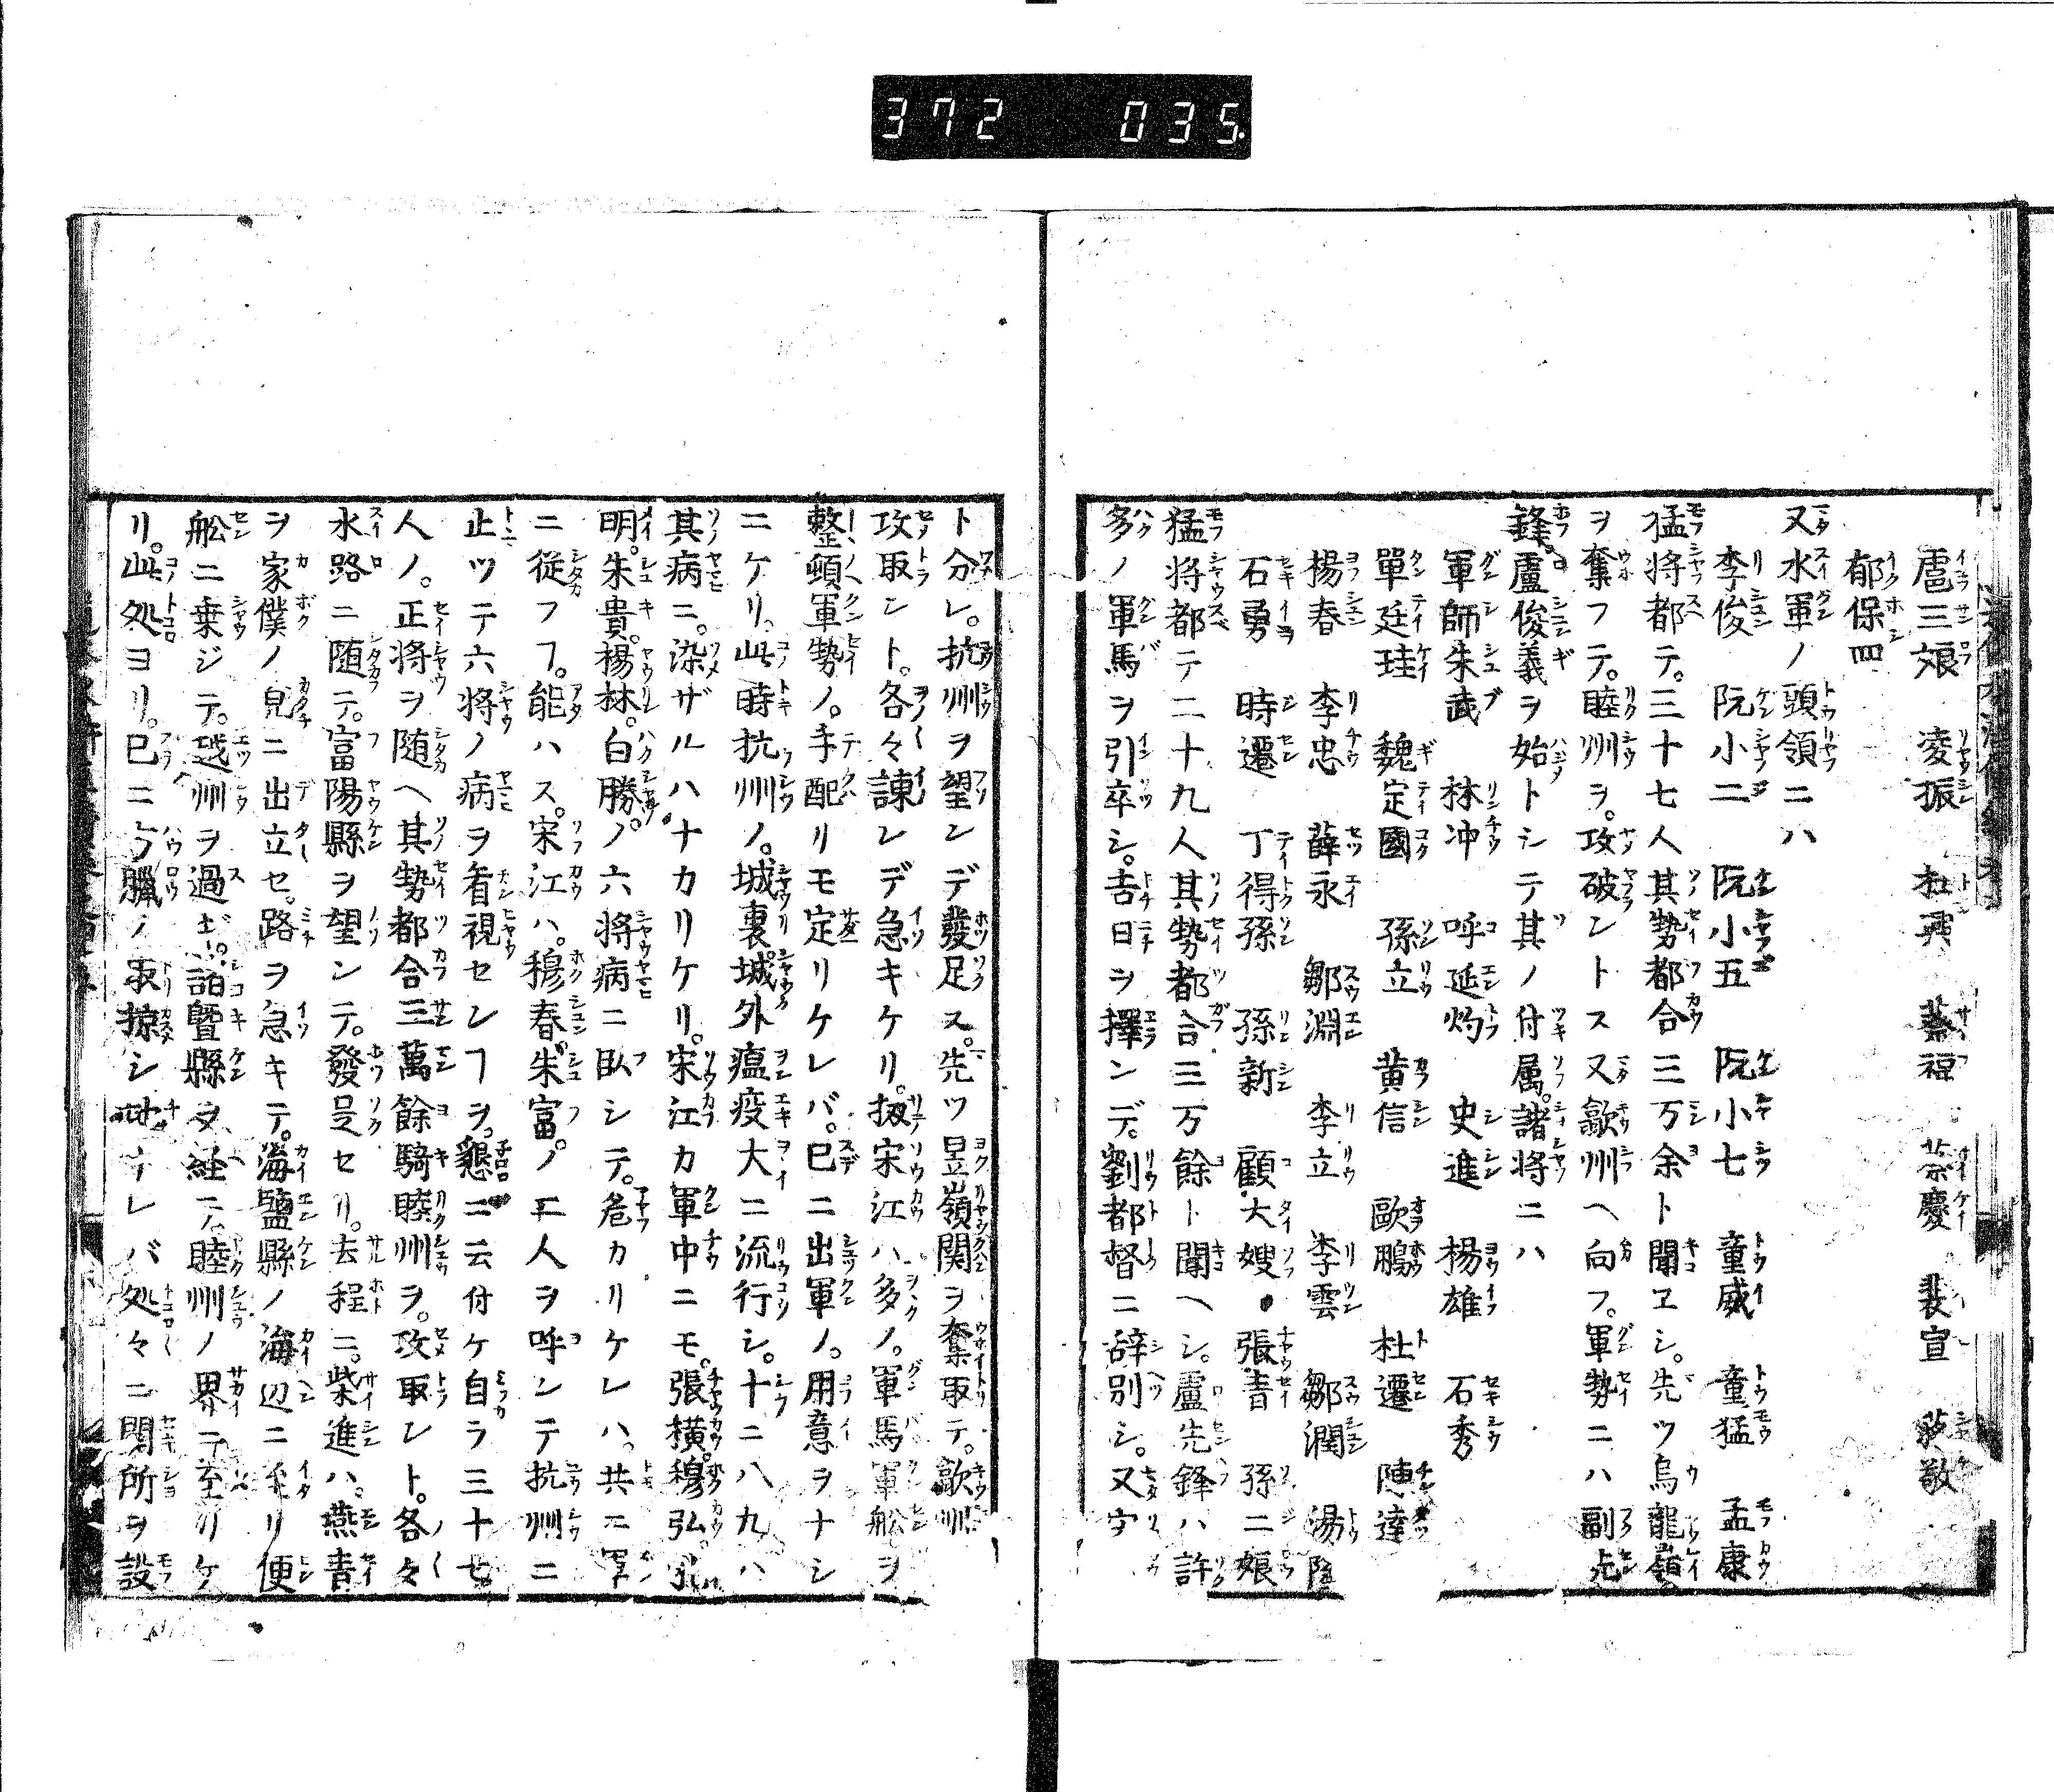 372 035.
扈三娘 凌振 杜興 蔡福 蔡慶 裴宣 蒋敬
郁保四
又水軍ノ頭領ニハ
李俊 阮小二 阮小五 阮小七 童威 童猛 孟康
猛将都テ。三十七人其勢都合三万余ト聞ヱシ。先ツ烏龍嶺
ヲ奪フテ。睦州ヲ。攻破ントス又歙州ヘ向フ。軍勢ニハ副先
鋒。盧俊義ヲ始トシテ其ノ付属。諸将ニハ
軍師朱武 林冲 呼延灼 史進 楊雄 石秀
單廷珪 魏定國 孫立 黄信 歐鵬 杜遷 陳達
楊春 李忠 薛永 鄒淵 李立 李雲 鄒潤 湯隆
石勇 時遷 丁得孫 孫新 顧大嫂 張青 孫二娘
猛将都テ二十九人其勢都合三万餘ト聞ヘシ。盧先鋒ハ許
多ノ軍馬ヲ引卒シ。吉日ヲ擇ンデ。劉都督ニ辞別シ。又宋
ト分レ。抗州ヲ望ンデ發足ス。先ツ昱嶺関ヲ奪取テ。歙州
攻取ント。各々諌レデ急キケリ。扨宋江ハ多ノ。軍馬軍舩ヲ
整頓軍勢ノ。手配リモ定リケレバ。已ニ出軍ノ。用意ヲナシ
ニケリ。此時抗州ノ。城裏城外瘟疫大ニ流行シ。十ニ八九ハ
其病ニ。染ザルハナカリケリ。宋江カ軍中ニモ。張横。穆弘。孔
明。朱貴。楊林。白勝。ノ六将病ニ臥シテ。危カリケレハ。共ニ軍
ニ従フフ。能ハス。宋江ハ。穆春。朱富。ノ二人ヲ呼ンテ抗州ニ
止ツテ六将ノ病ヲ看視センフヲ。懇ニ云付ケ自ラ三十七
人ノ。正将ヲ随ヘ其勢都合三萬餘騎睦州ヲ。攻取ント。各々
水路ニ随テ。富陽縣ヲ望ンテ。發足セリ。去程ニ。柴進ハ。燕青
ヲ家僕ノ皃ニ出立セ。路ヲ急キテ。海鹽縣ノ海辺ニ至リ便
舩ニ乗ジテ。越州ヲ過ギ。諸曁縣ヲ経テ。睦州ノ界ニ至リケ
リ。此処ヨリ。已ニ方臘ノ取掠シ地ナレバ処々ニ関所ヲ設